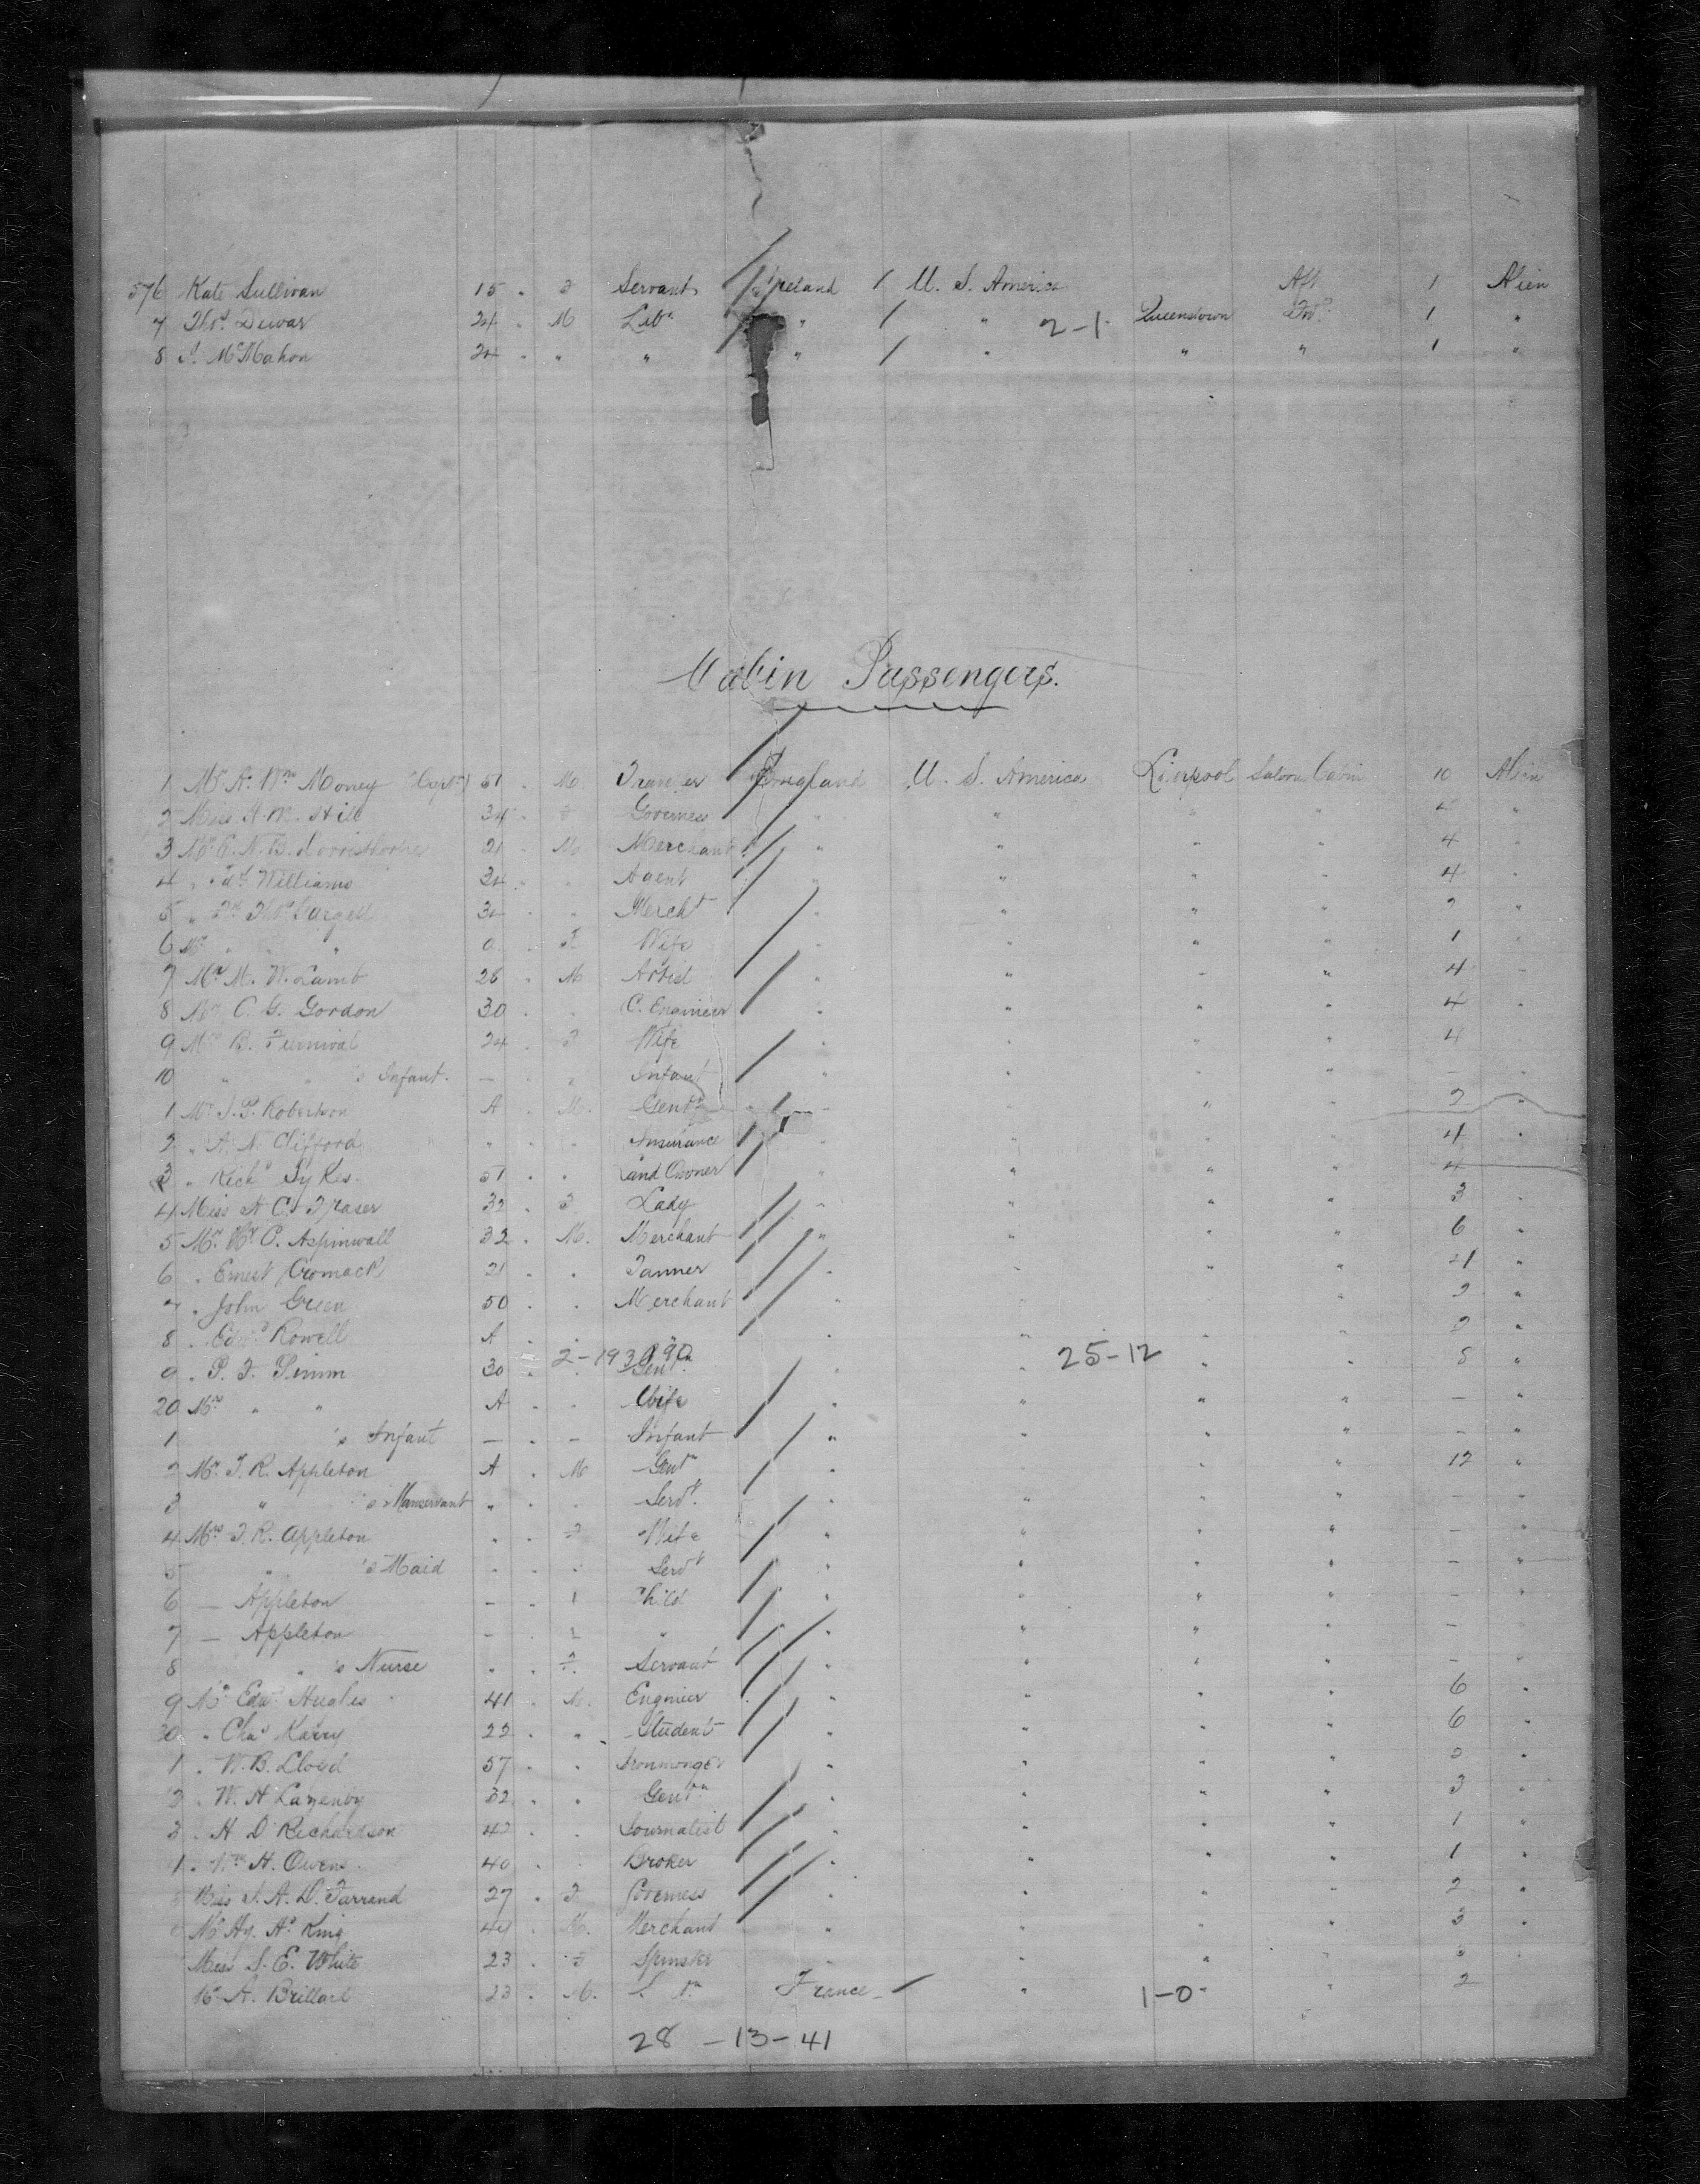 576 Kate Sullivan 15 " F Servant Ireland / U. S. America Aft 1 Alien
7 Thos Dewar 24 " M Labr " / " 2-1 Queenstown Fwd 1 "
8 J. McMahon 24 " " " " / " " " 1 "
Cabin Passengers.
1 Mr A. Wm Money (Capt) 51 M. England U. S. America Liverpool Saloon Cabin 10 Alien
2 Miss H. M. Hill 34 F Governess " " " "
3 Mr 21 M Merchant " " " " 4
4 " Jas Williams 34 " Agent " " " " 4
5 " Dr Thos Mercht " " " " 2 "
6 Mrs " " F. Wife " " " " 1
7 Mr M. W. Lamb 26 M Artist " " " " 4
8 Mr C. G. Gordon 30 " C. Engineer " " " " 4 "
9 Mrs B. Furnival 24 F Wife " " " " 4
10 " " 's Infant. — " Infant " " " —
1 Mr J. P. Robertson A M. Gentn " " " 2 "
2 " A. N. Clifford " " Insurance " " " 4 "
3 " Richd Sykes. 51 " Land Owner " " " " 4
4 Miss A C. Fraser 32 F Lady " " " " 3 "
5 Mr. Wm O. Aspinwall 32 M. Merchant " " " " 6 "
6 " Ernest Cromack 21 " Tanner " " " " "
7 " John Green 50 " Merchant " " 2 "
8 " Edwd Rowell A " " " " " 2 "
9 " P. F. Pimm 30 " 2-19 Gentn " " 25-12 " " 8 "
20 Mrs " " A " Wife " " " " — "
1 's Infant — — Infant " " " — "
2 Mr J. R. Appleton A M Gentn " " " 12 "
3 " 's Manservant " " Servt " " " " — "
4 Mrs J. R. Appleton " F Wife " " " " — "
5 " 's Maid " " Servt " " " " — "
6 — Appleton — Child " " " " — "
7 — Appleton — " " " " " —
8 " 's Nurse " F. Servant " " " " —
9 Mr Edwd Hughes 41 M. Engineer " " " " 6 "
30 " Chas 22 " Student " " " " 6 "
1 " W. B. Lloyd 57 " Ironmonger " " " " "
2 " W. H Lazenby 32 " Gentn " " " " 3 "
3 " H D Richardson 42 " Journalist " " " " 1 "
" Wm H. Owens 40 " Broker " " " " 1 "
Miss A. D. Farrand 27 F Governess " " " " 2 "
Mr Hy. Ad King 44 M. Merchant " " " " 3 "
Miss S. E. White 23 F Spinster " "
Mr A. Brillact 23 M. France / " 1-0 " 2
28 - 13 - 41